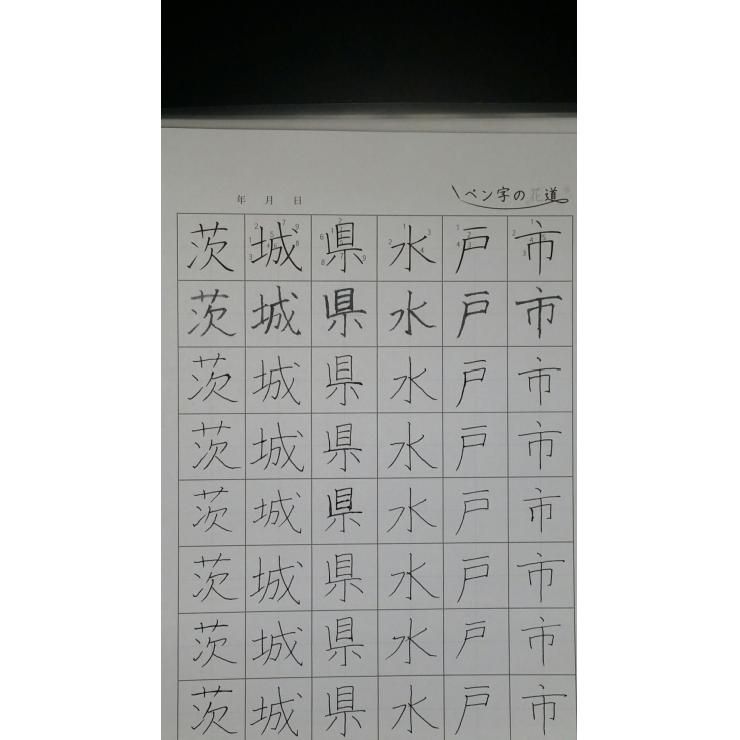 ペン字の花道
年 月 日
茨城県水戸市
茨城県水戸市
茨城県水戸市
茨城県水戸市
茨城県水戸市
茨城県水戸市
茨城県水戸市
茨城県水戸市